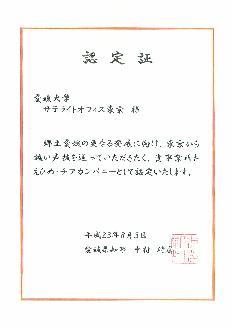 認定証
愛媛大学
サテライトオフィス東京 様
郷土愛媛の更なる発展に向け、東京から
強い声援を送っていただきたく、貴事業所を
えひめ・チアカンパニーとして認定いたします。
平成23年8月5日
愛媛県知事 中村 時広